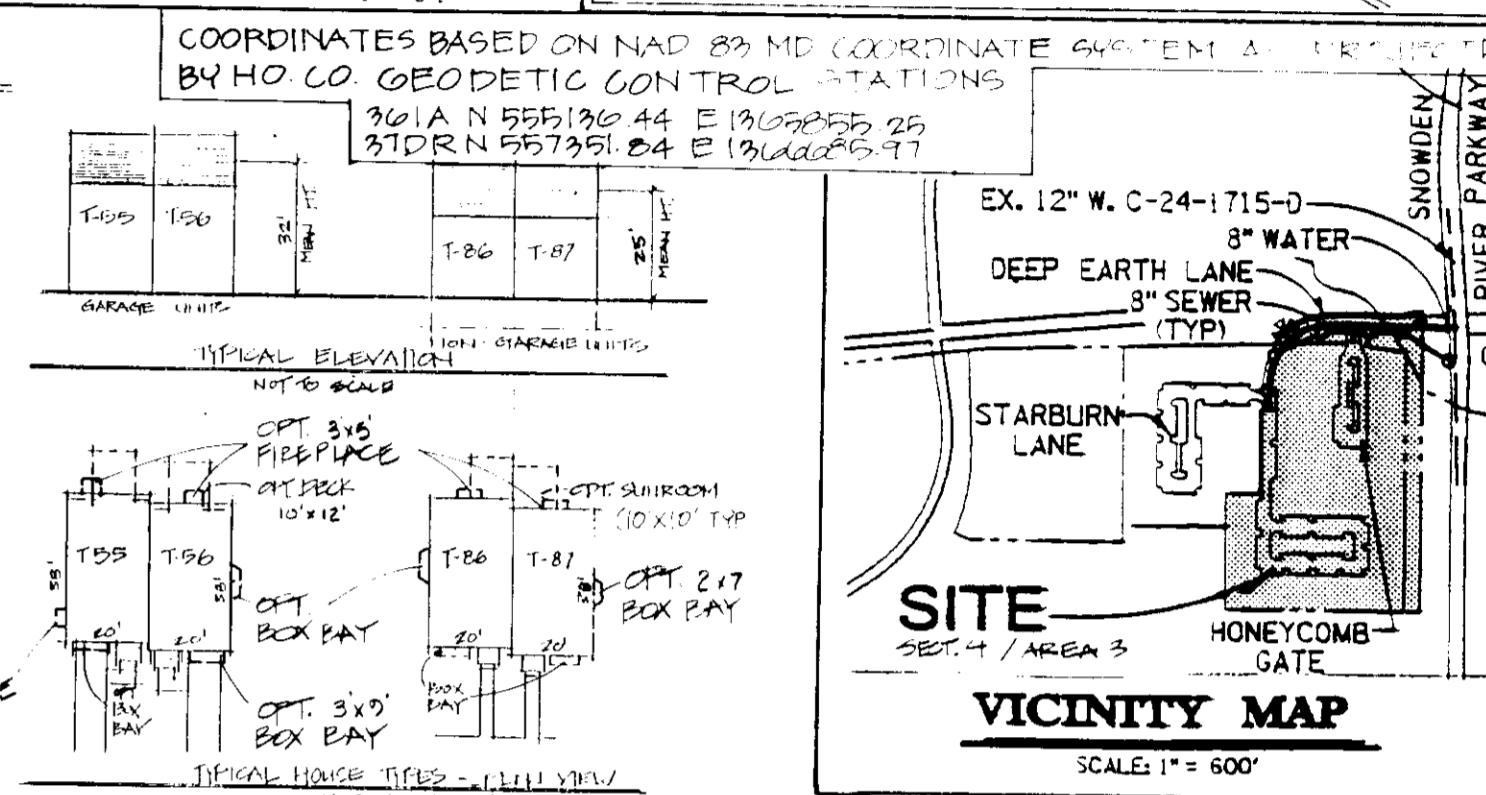 COORDINATES BASED ON NAD 83 MD COORDINATE SYSTEM
BY HO. CO. GEODETIC CONTROL STATIONS
361A N 555136.44 E 1365855.25
37DR N 557351.84 E 1366685.97
T-55 T-56
32'
MEAN HT.
GARAGE UNITS
T-86 T-87
25'
MEAN HT.
NON-GARAGE UNITS
TYPICAL ELEVATION
NOT TO SCALE
OPT. 3'x5'
FIREPLACE
OPT. DECK
10'x12'
T55 T-56
38'
38'
20' 20'
OPT.
BOX BAY
BOX
BAY
OPT. 3'x9'
BOX BAY
OPT. SUNROOM
10'X10' TYP
T-86 T-87
38'
20' 20'
BOX
BAY
OPT. 2x7
BOX BAY
TYPICAL HOUSE TYPES - PLAN VIEW
SNOWDEN
RIVER PARKWAY
EX. 12" W. C-24-1715-D
8" WATER
DEEP EARTH LANE
8" SEWER
(TYP)
STARBURN
LANE
SITE
SECT. 4 / AREA 3
HONEYCOMB
GATE
VICINITY MAP
SCALE: 1" = 600'